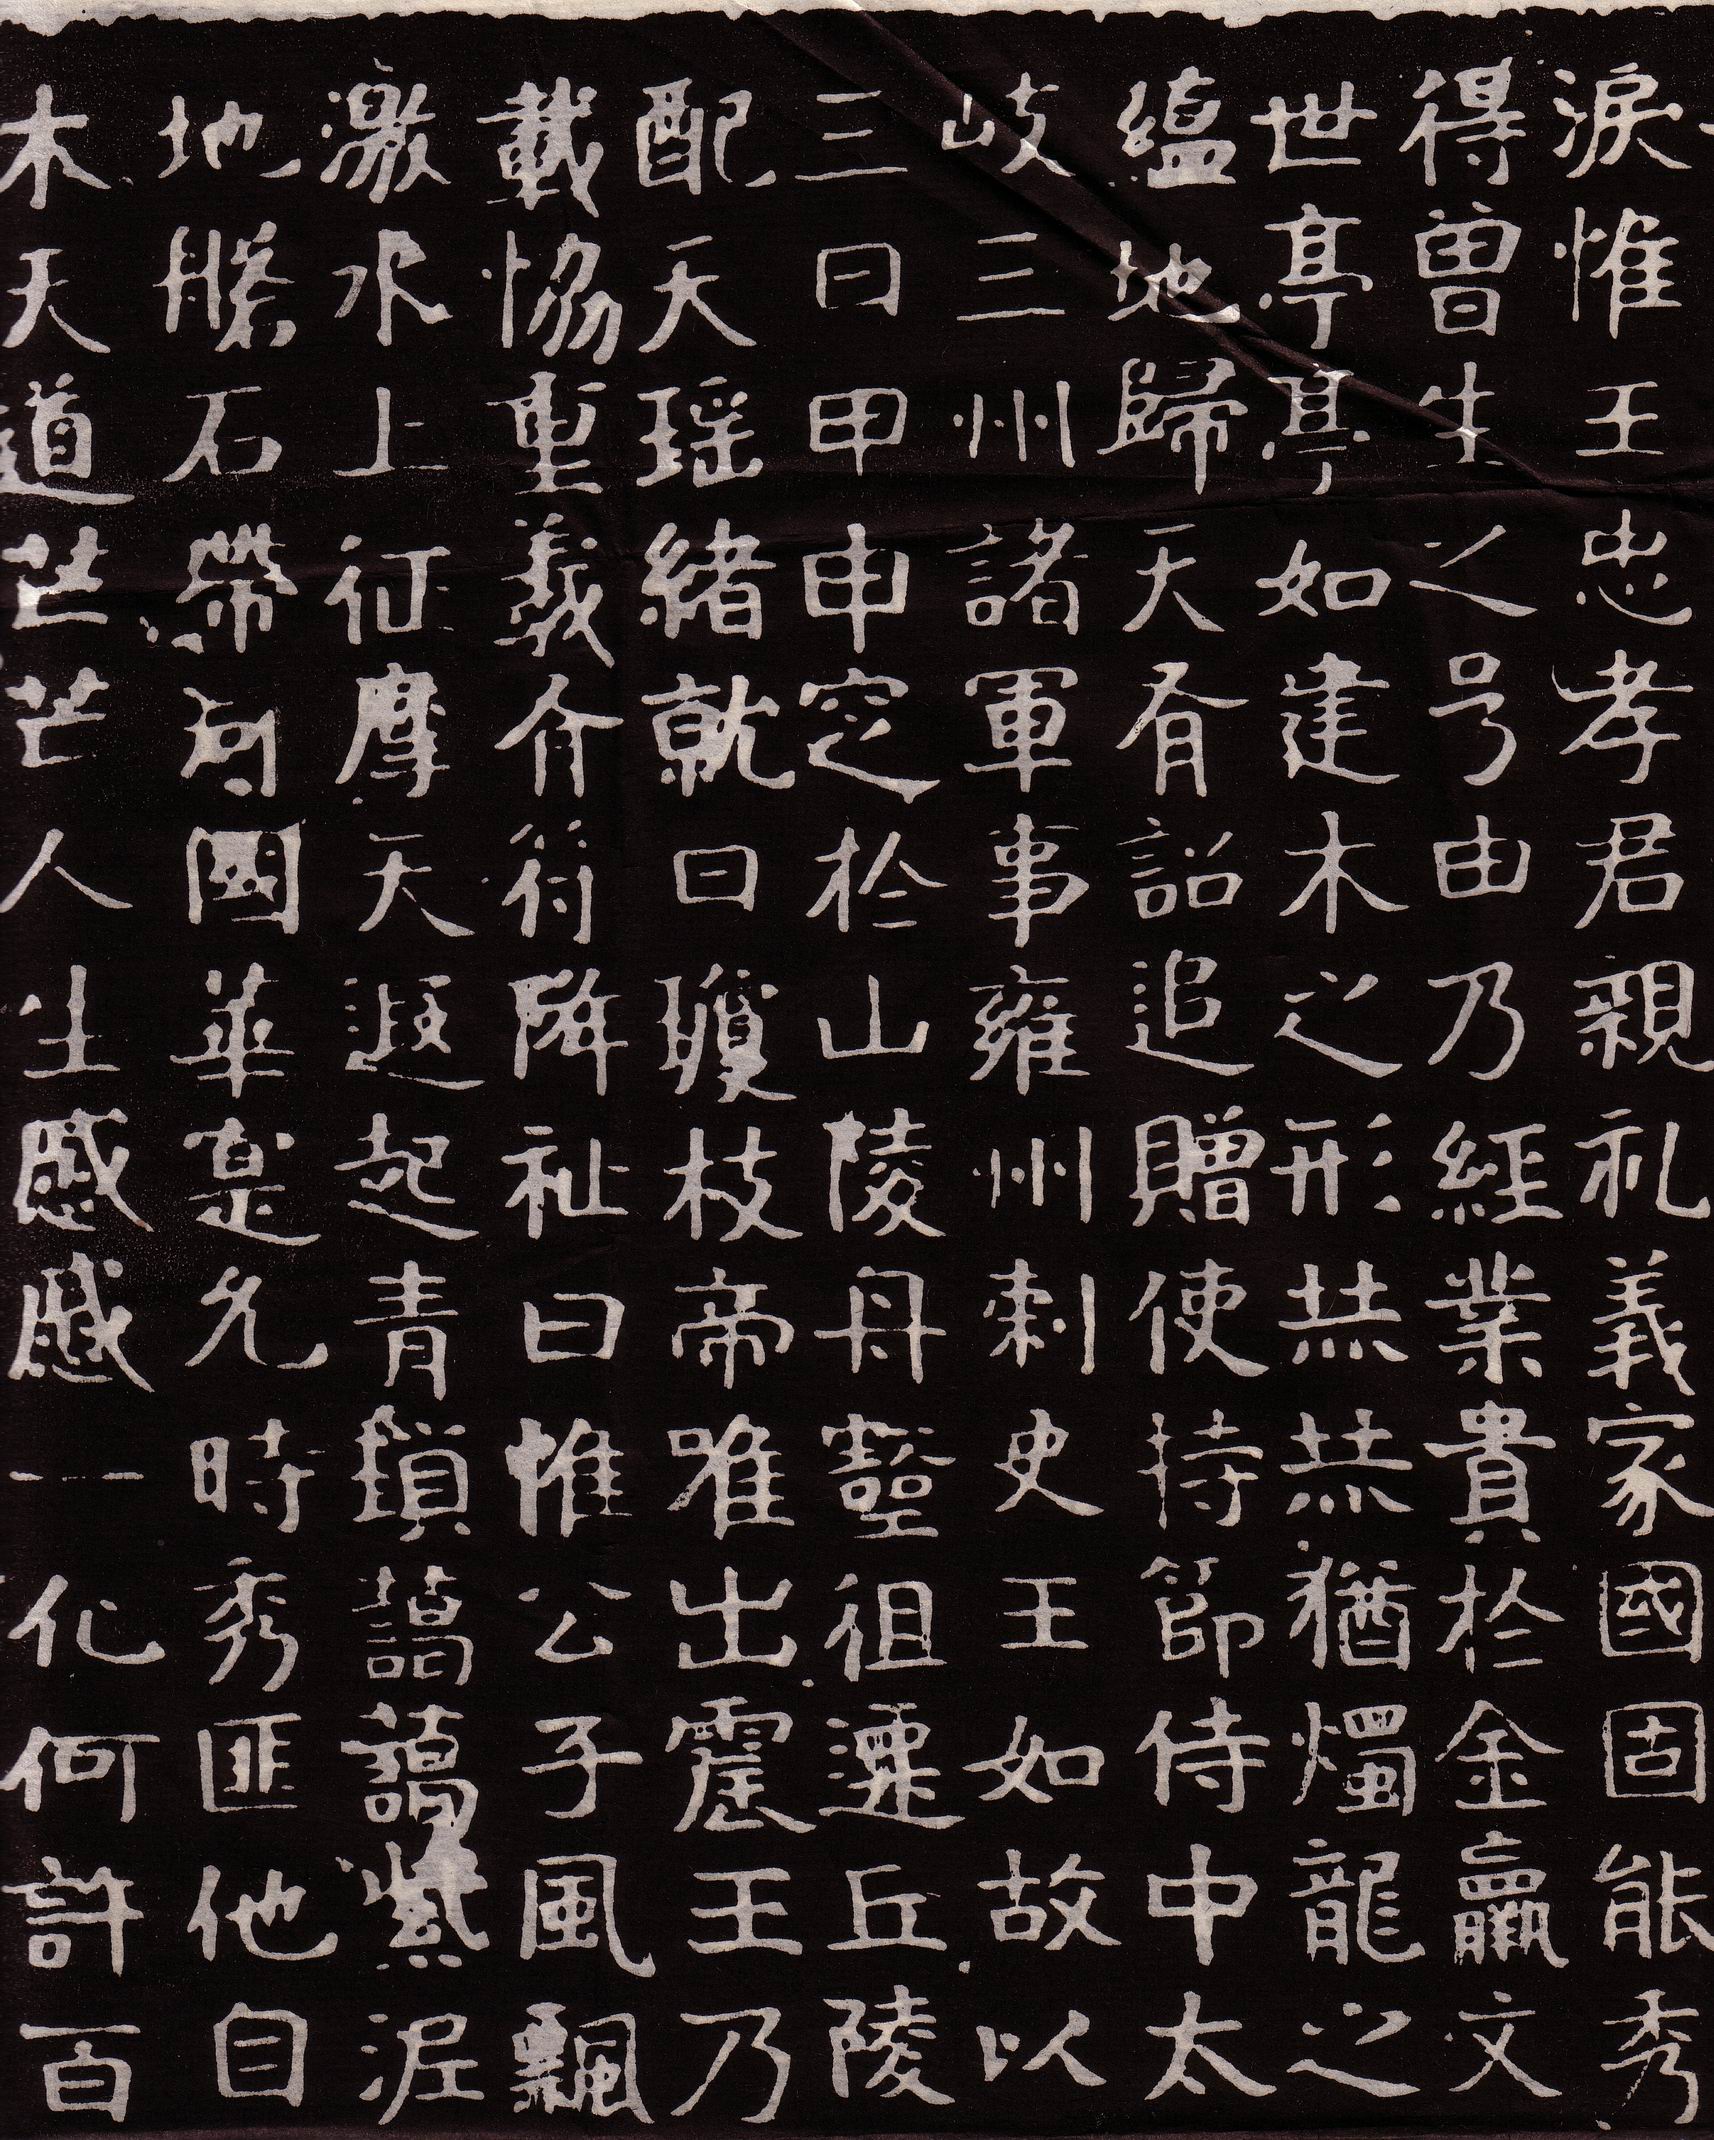 淚惟王忠孝君親礼義家國固能秀
得曽生之号由乃經業貴於金籯文
世亭亭如建木之形赫赫猶燭龍之
緼地歸天有詔追贈使持節侍中太
歧三州諸軍事雍州刺史王如故以
三日甲申窆於山陵丹壑徂遷丘陵
配天瑶緒就日瓊枝帝唯出震王乃
載恊重義介符降祉曰惟公子風飄
激水上征摩天遐起青鎖藹藹紫泥
地勝石帶河國華是允時秀匪他自
木天道芒芒人生慼慼一化何許百